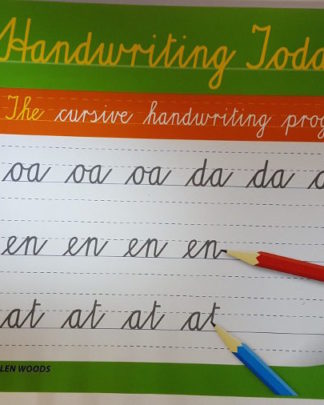 Handwriting Toda
The cursive handwriting prog
oa oa oa da da
en en en en
at at at at
LEN WOODS